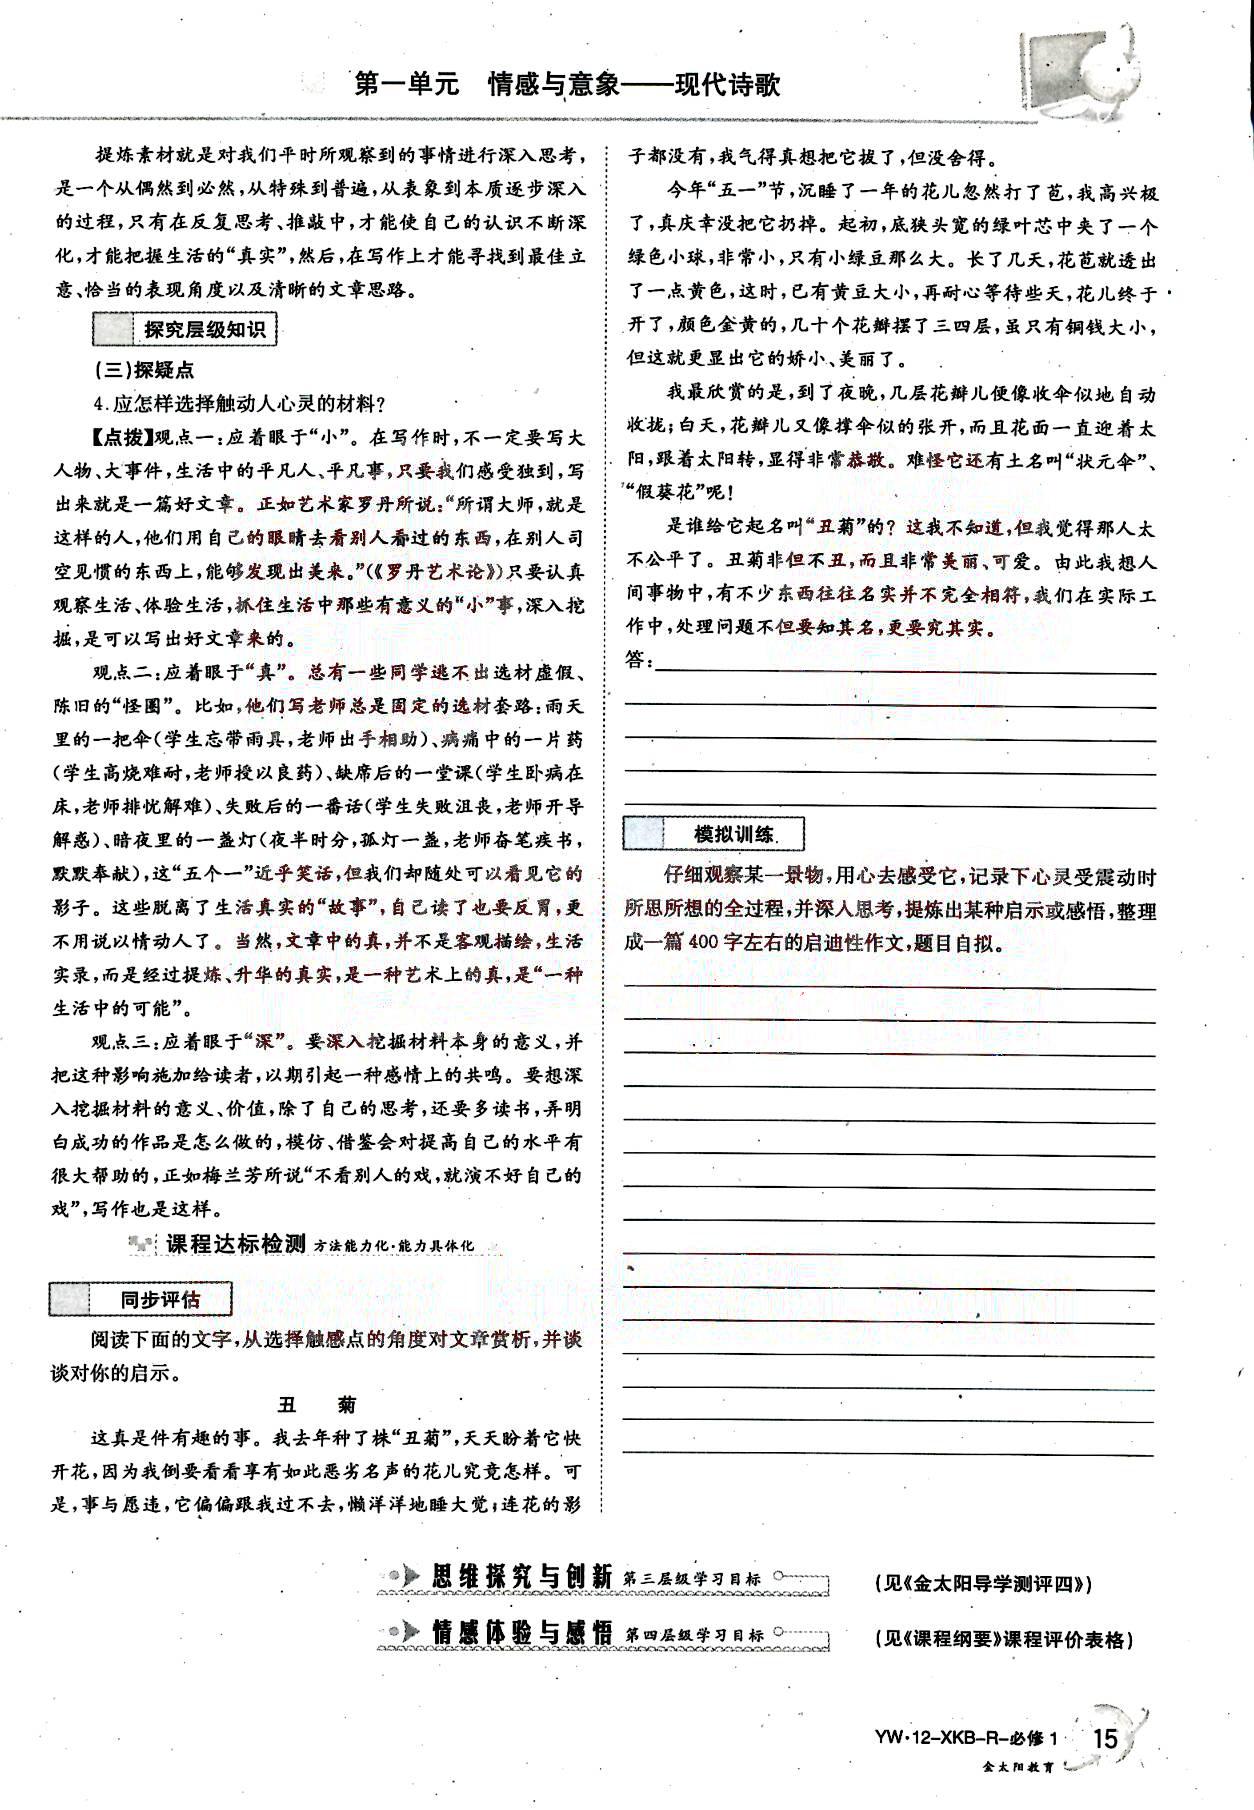 第一单元　情感与意象——现代诗歌
提炼素材就是对我们平时所观察到的事情进行深入思考，
是一个从偶然到必然，从特殊到普遍，从表象到本质逐步深入
的过程，只有在反复思考、推敲中，才能使自己的认识不断深
化，才能把握生活的“真实”，然后，在写作上才能寻找到最佳立
意、恰当的表现角度以及清晰的文章思路。
探究层级知识
(三)探疑点
4.应怎样选择触动人心灵的材料?
【点拨】观点一：应着眼于“小”。在写作时，不一定要写大
人物、大事件，生活中的平凡人、平凡事，只要我们感受独到，写
出来就是一篇好文章。正如艺术家罗丹所说：“所谓大师，就是
这样的人，他们用自己的眼睛去看别人看过的东西，在别人司
空见惯的东西上，能够发现出美来。”(《罗丹艺术论》)只要认真
观察生活、体验生活，抓住生活中那些有意义的“小”事，深入挖
掘，是可以写出好文章来的。
观点二：应着眼于“真”。总有一些同学逃不出选材虚假、
陈旧的“怪圈”。比如，他们写老师总是固定的选材套路：雨天
里的一把伞(学生忘带雨具，老师出手相助)、病痛中的一片药
(学生高烧难耐，老师授以良药)、缺席后的一堂课(学生卧病在
床，老师排忧解难)、失败后的一番话(学生失败沮丧，老师开导
解惑)、暗夜里的一盏灯(夜半时分，孤灯一盏，老师奋笔疾书，
默默奉献)，这“五个一”近乎笑话，但我们却随处可以看见它的
影子。这些脱离了生活真实的“故事”，自己读了也要反胃，更
不用说以情动人了。当然，文章中的真，并不是客观描绘，生活
实录，而是经过提炼、升华的真实，是一种艺术上的真，是“一种
生活中的可能”。
观点三：应着眼于“深”。要深入挖掘材料本身的意义，并
把这种影响施加给读者，以期引起一种感情上的共鸣。要想深
入挖掘材料的意义、价值，除了自己的思考，还要多读书，弄明
白成功的作品是怎么做的，模仿、借鉴会对提高自己的水平有
很大帮助的，正如梅兰芳所说“不看别人的戏，就演不好自己的
戏”，写作也是这样。
课程达标检测 方法能力化·能力具体化
同步评估
阅读下面的文字，从选择触感点的角度对文章赏析，并谈
谈对你的启示。
丑　菊
这真是件有趣的事。我去年种了株“丑菊”，天天盼着它快
开花，因为我倒要看看享有如此恶劣名声的花儿究竟怎样。可
是，事与愿违，它偏偏跟我过不去，懒洋洋地睡大觉；连花的影
子都没有，我气得真想把它拔了，但没舍得。
今年“五一”节，沉睡了一年的花儿忽然打了苞，我高兴极
了，真庆幸没把它扔掉。起初，底狭头宽的绿叶芯中夹了一个
绿色小球，非常小，只有小绿豆那么大。长了几天，花苞就透出
了一点黄色，这时，已有黄豆大小，再耐心等待些天，花儿终于
开了，颜色金黄的，几十个花瓣摆了三四层，虽只有铜钱大小，
但这就更显出它的娇小、美丽了。
我最欣赏的是，到了夜晚，几层花瓣儿便像收伞似地自动
收拢；白天，花瓣儿又像撑伞似的张开，而且花面一直迎着太
阳，跟着太阳转，显得非常恭敬。难怪它还有土名叫“状元伞”、
“假葵花”呢！
是谁给它起名叫“丑菊”的？这我不知道，但我觉得那人太
不公平了。丑菊非但不丑，而且非常美丽、可爱。由此我想人
间事物中，有不少东西往往名实并不完全相符，我们在实际工
作中，处理问题不但要知其名，更要究其实。
答：
模拟训练
仔细观察某一景物，用心去感受它，记录下心灵受震动时
所思所想的全过程，并深入思考，提炼出某种启示或感悟，整理
成一篇400字左右的启迪性作文，题目自拟。
思维探究与创新 第三层级学习目标 (见《金太阳导学测评四》)
情感体验与感悟 第四层级学习目标 (见《课程纲要》课程评价表格)
YW·12-XKB-R-必修1 15
金太阳教育